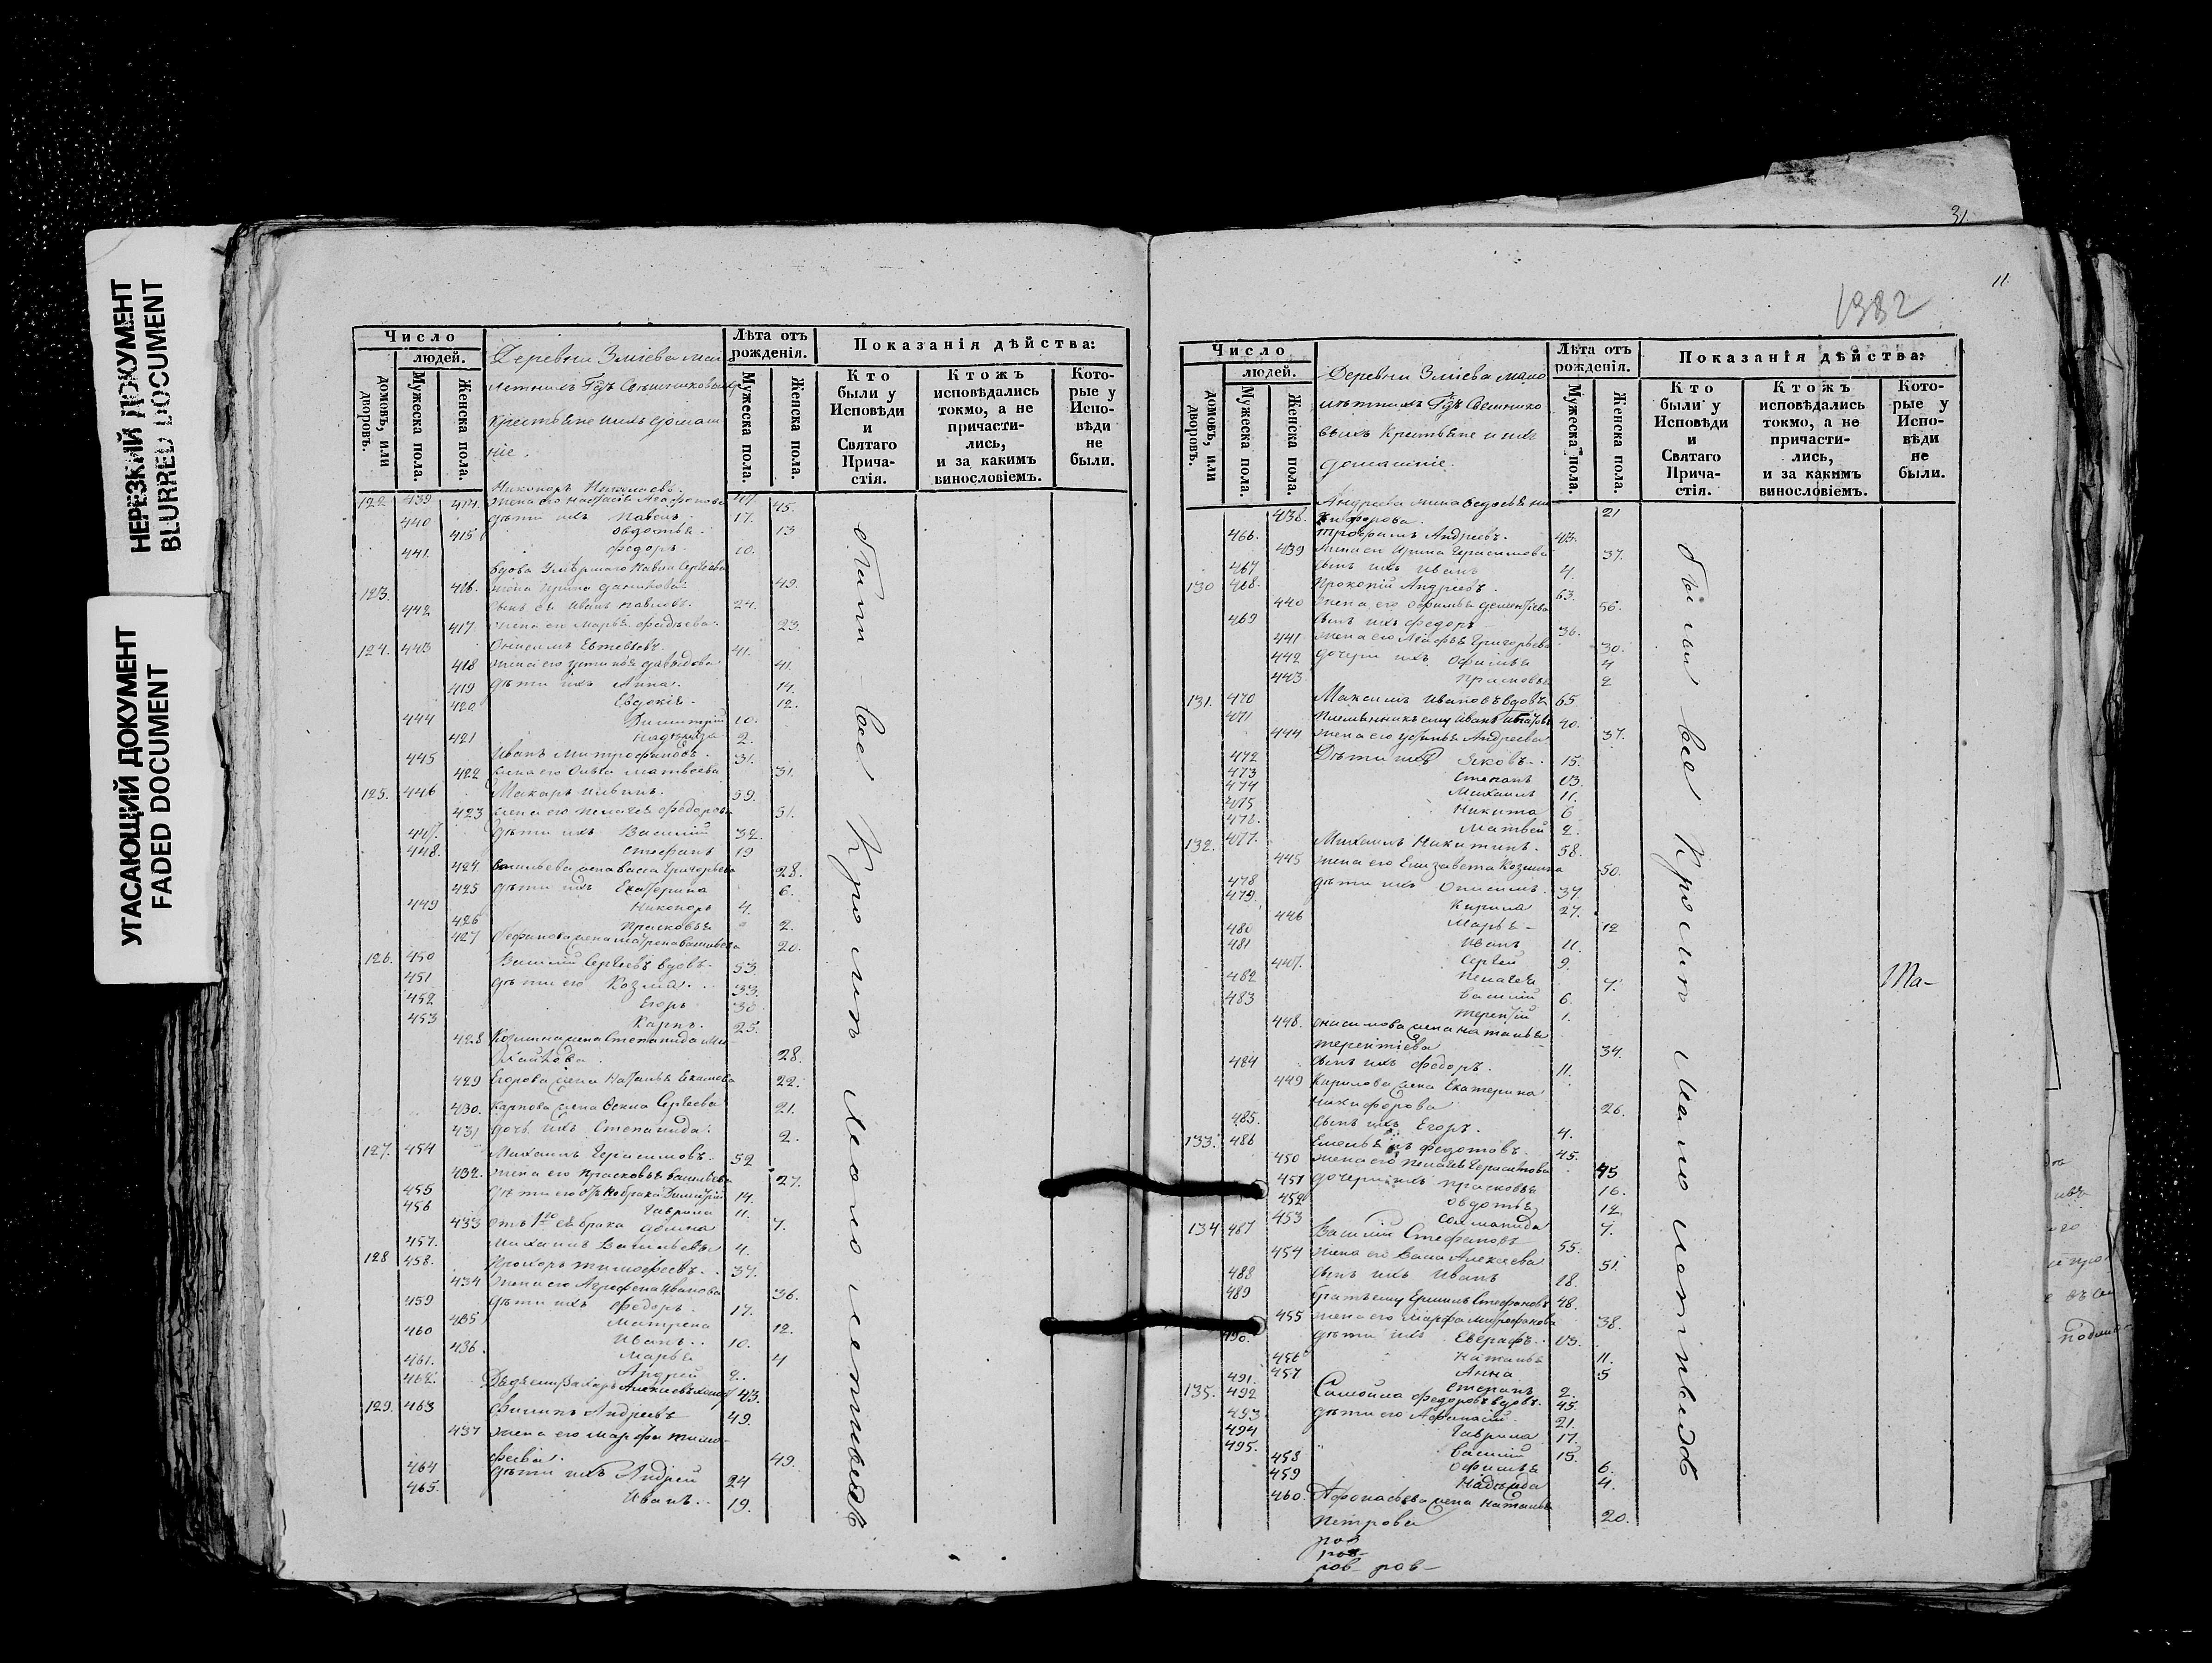 НЕРЕЗКИЙ ДОКУМЕНТ
BLURRED DOCUMENT
УГАСАЮЩИЙ ДОКУМЕНТ
FADED DOCUMENT
Число
людей.
домовъ, или дворовъ.
Мужеска пола.
Женска пола.
Деревни Зміева мало
летнихъ Гдъ Свешниковыхъ
крестьяне ихъ домаш
ніе.
Лѣта отъ рожденія.
Мужеска пола.
Женска пола.
Показанія дѣйства:
Кто были у Исповѣди и Святаго Прича-стія.
Ктожъ исповѣдались токмо, а не причасти-лись, и за какимъ винословіемъ.
Кото-рые у Испо-вѣди не были.
122 439 Никоноръ 47
414 жена его Настасья Агафонова 45.
440 дѣти ихъ Павелъ 17.
415 Овдотья 13
441. Федоръ 10.
вдова умершаго Павла Сергеева
123. 416. жена Ирина Данилова 49.
442 сынъ ея Иванъ Павловъ. 24.
417 жена его Марья Фадѣева 23.
124. 443 Онисимъ Евтевьевъ. 41.
418 жена его Устинья Давыдова 41.
419 дѣти ихъ Анна. 14.
420 Евдокія. 12.
444 Димитрій 10.
421 Надежда 2.
445 Иванъ Митрофановъ. 31.
422 жена его Ольга Матвѣева 31.
125. 446 Макаръ 59.
423 жена его Пелагея Федорова 51.
447. дѣти ихъ Василій 32.
448. Стефанъ 19
424 Васильева жена Васса Григорьева 28.
425 дѣти ихъ Екатерина 6.
449 Никоноръ 4.
426 Прасковья 2.
427 Стефанова жена Матрена Васильева 20.
126. 450 Василій Сергѣевъ вдовъ. 53
451 дѣти его Козма. 33.
452 Егоръ 30
453 Карпъ. 25.
428 Козмина жена Степанида Ми-
хайлова. 28.
429 Егорова жена Наталья Екимова 22.
430. Карпова жена Фекла Сергеева 21.
431 дочь ихъ Степанида. 2.
127. 454 Михаилъ Герасимовъ. 52
432. жена его Прасковья Васильева 27.
455 дѣти его Димитрій 14.
456 Гаврила 11.
433 отъ 1го ея брака Домна 7.
457. Михаилъ Васильевъ 4.
128 458. Прохоръ Тимофеевъ. 37.
434 жена его Агрофена Иванова 36.
459 дѣти ихъ Федоръ. 17.
435 Матрена 12.
460 Иванъ. 10.
436. Марья 4
461. Андрей 2.
462. Захаръ Алексеевъ 43.
129. 463 Филипъ Андреевъ 49.
437 жена его Марфа Тимо-
фѣева. 49.
464 дѣти ихъ Андрей 24
465. Иванъ. 19.
были все Кромѣ малолетнихъ
31
11
1332
Число
людей.
домовъ, или дворовъ.
Мужеска пола.
Женска пола.
Деревни Зміева мало
лѣтнихъ Гдъ Свешнико
выхъ Крестьяне и ихъ
домашніе.
Лѣта отъ рожденія.
Мужеска пола.
Женска пола.
Показанія дѣйства:
Кто были у Исповѣди и Святаго Прича-стія.
Ктожъ исповѣдались токмо, а не причасти-лись, и за какимъ винословіемъ.
Кото-рые у Испо-вѣди не были.
Андреева жена Федосья Ни
438. кифорова. 21
466. Трофимъ Андреевъ. 43.
439 жена его Ирина Герасимова 37.
467 сынъ ихъ Иванъ 4.
130 468. Прокопій Андреевъ. 63.
440 жена его Офимья Дементьева 50.
469 сынъ ихъ Федоръ 36.
441 жена его Агафья Григорьева 30.
442 дочери ихъ Офимья 4
443 Прасковья 2
131. 470 Максимъ Ивановъ вдовъ 65
471 Племянникъ ему Иванъ 40.
444 жена его Устинья Андреева 37.
472 Дѣти ихъ Яковъ. 15.
473 Степанъ 13.
474 Михаилъ 11.
475 Никита 6
Матвей 2.
132. 477. Михаилъ Никитинъ. 58.
445 жена его Елизавета Козмина 50.
478 дѣти ихъ Онисимъ. 37.
479. Кирила 27.
446 Марья 12
480 Иванъ 11.
481 Сергей 9.
447. Пелагея 7.
482 Василій 6.
483 Терентій 1.
448. Онисимова жена Наталья
Терентіева 34.
484 сынъ ихъ Федоръ. 11.
449 Кирилова жена Екатерина
Никифорова 26.
485. сынъ ихъ Егоръ. 4.
133. 486 Емельянъ Федотовъ. 45.
450 жена его Пелагея Герасимова 45
451 дочери ихъ Прасковья 16.
452 Овдотья 12.
453 Соломанида 7.
134 487 Василій Стефановъ 55.
454 жена его Васса Алексеева 51.
488 сынъ ихъ Иванъ 18.
489 братъ ему Ермилъ Стефановъ 48.
455 жена его Марфа Митрофанова 38.
490. дѣти ихъ Евграфъ. 13.
456 Наталья 11.
457 Анна 5
491. Степанъ 2.
135. 492 Самойла Федоровъ вдовъ. 45.
493 дѣти его Афонасій. 21.
494 Гаврила 17.
495. Василій 15.
458 Офимья 6.
459 Надежда 4.
460. Афонасьева жена Наталья
Петрова 20.
были все Кромѣ малолетнихъ
Та-
ров
ров-
ров- ров-